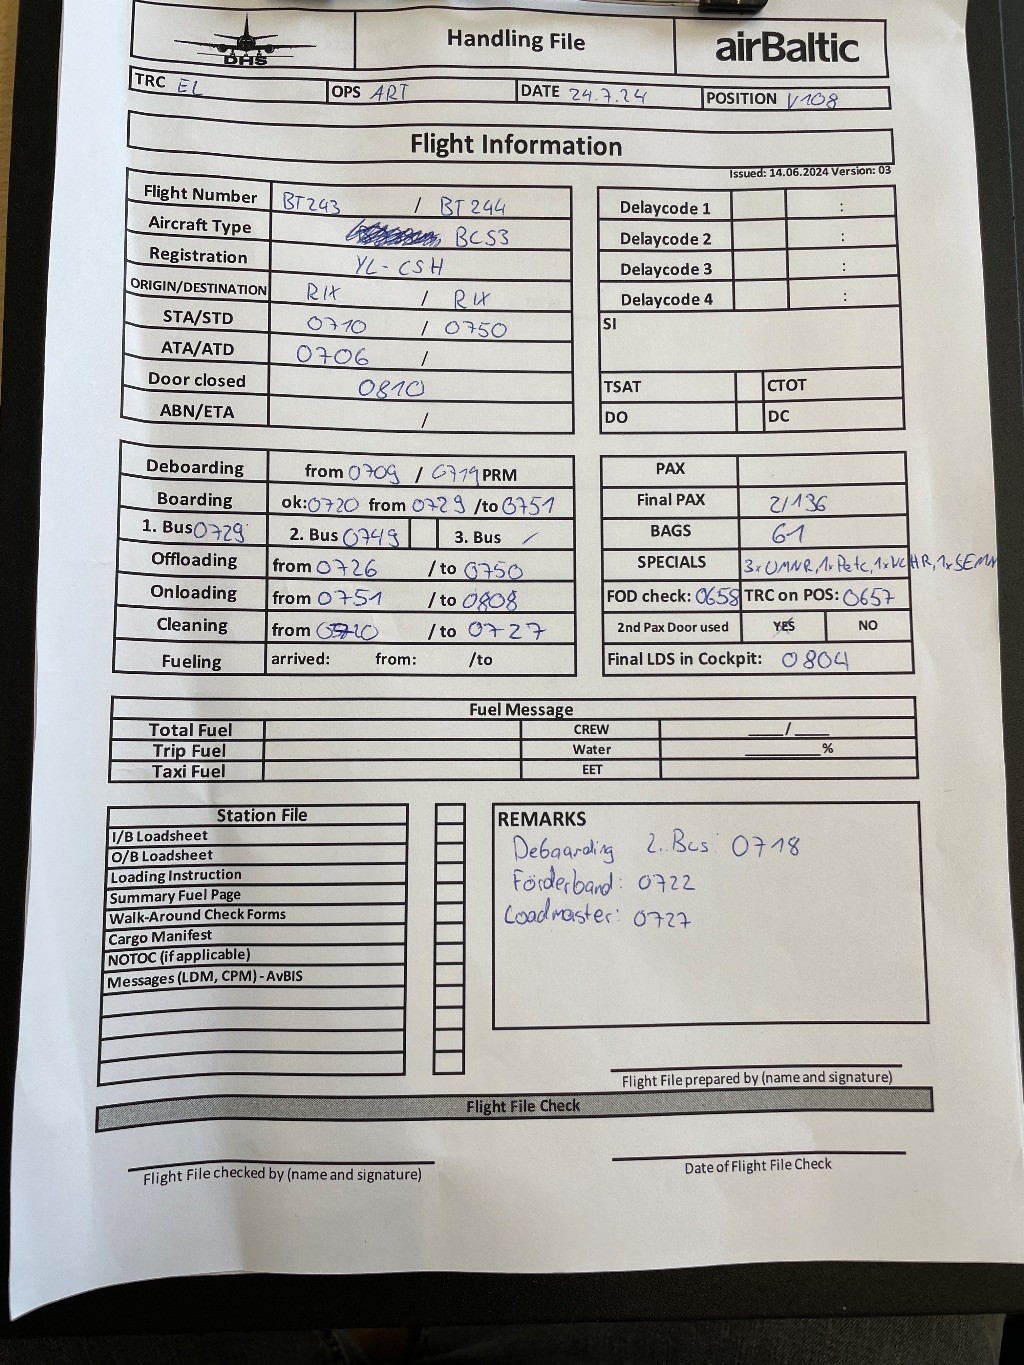 DHS
Handling File
airBaltic
TRC EL OPS ART DATE 24.7.24 POSITION V108
Flight Information
Issued: 14.06.2024 Version: 03
Flight Number BT243 / BT244
Aircraft Type BCS3
Registration YL-CSH
ORIGIN/DESTINATION RIX / RIX
STA/STD 0710 / 0750
ATA/ATD 0706 /
Door closed 0810
ABN/ETA /
Delaycode 1 :
Delaycode 2 :
Delaycode 3 :
Delaycode 4 :
SI
TSAT CTOT
DO DC
Deboarding from 0709 / 0719 PRM
Boarding ok: 0720 from 0729 /to 0751
1. Bus 0729 2. Bus 0749 3. Bus /
Offloading from 0726 /to 0750
Onloading from 0751 /to 0808
Cleaning from 0720 /to 0727
Fueling arrived: from: /to
PAX
Final PAX 2/136
BAGS 61
SPECIALS 3x UMNR, 1x Petc, 1x WCHR, 1x SEMN
FOD check: 0658 TRC on POS: 0657
2nd Pax Door used YES NO
Final LDS in Cockpit: 0804
Fuel Message
Total Fuel CREW ___/___
Trip Fuel Water ______%
Taxi Fuel EET
Station File
I/B Loadsheet
O/B Loadsheet
Loading Instruction
Summary Fuel Page
Walk-Around Check Forms
Cargo Manifest
NOTOC (if applicable)
Messages (LDM, CPM) - AvBIS
REMARKS
Deboarding 2. Bus 0718
Förderband: 0722
Loadmaster: 0727
Flight File prepared by (name and signature)
Flight File Check
Flight File checked by (name and signature)
Date of Flight File Check